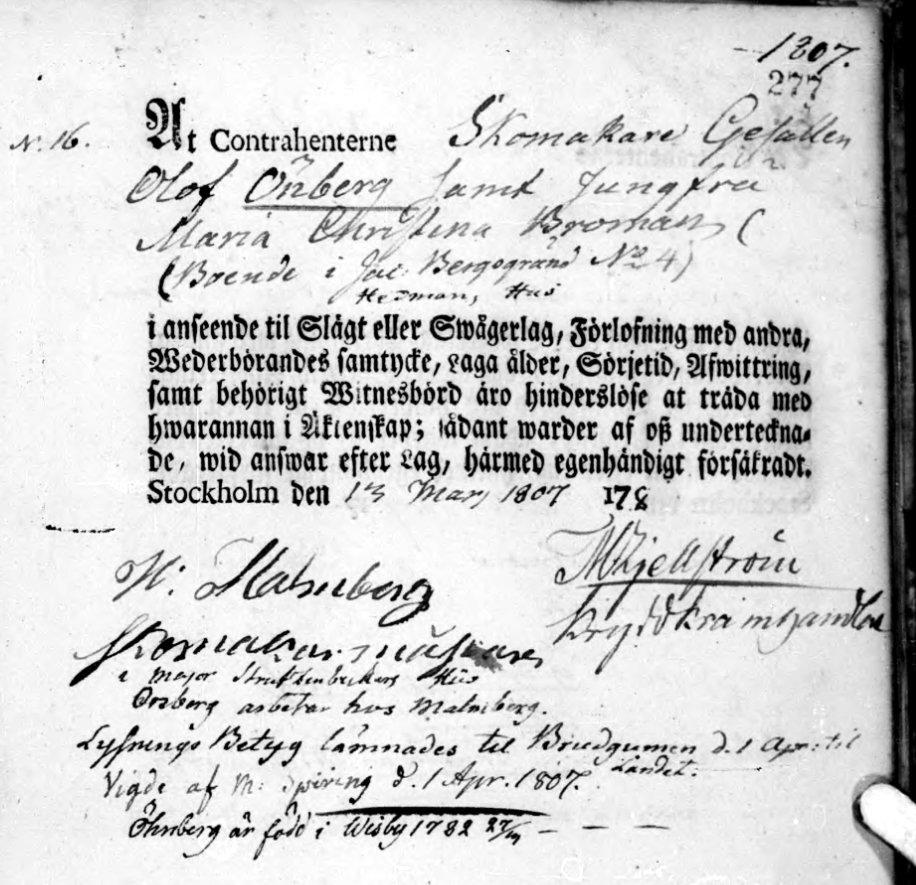 1807.
277
N. 16. At Contrahenterne Skomakare Gesällen
Olof Önberg samt Jungfru
Maria Christina Broman (
(Boende i Jac: Bergsgränd No 4)
Hedman, Hus
i anseende til Slägt eller Swågerlag, Förlofning med andra,
Wederbörandes samtycke, laga ålder, Sörjetid, Afwittring,
samt behörigt Witnesbörd äro hinderslöse at träda med
hwarannan i Äktenskap; sådant warder af oß underteckna-
de, wid answar efter Lag, härmed egenhändigt försäkradt.
Stockholm den 13 Mars 1807 178
Kjellström
Malmberg
Kryddkrämhandlare
Skomakare
i Major Hus
Örnberg arbetar hos Malmberg.
Lysnings Betyg lämnades til Brudgumen d. 1 Apr: til
Landet.
Vigde af M: d. 1 Apr. 1807.
Öhnberg är född i Wisby 1782 27/